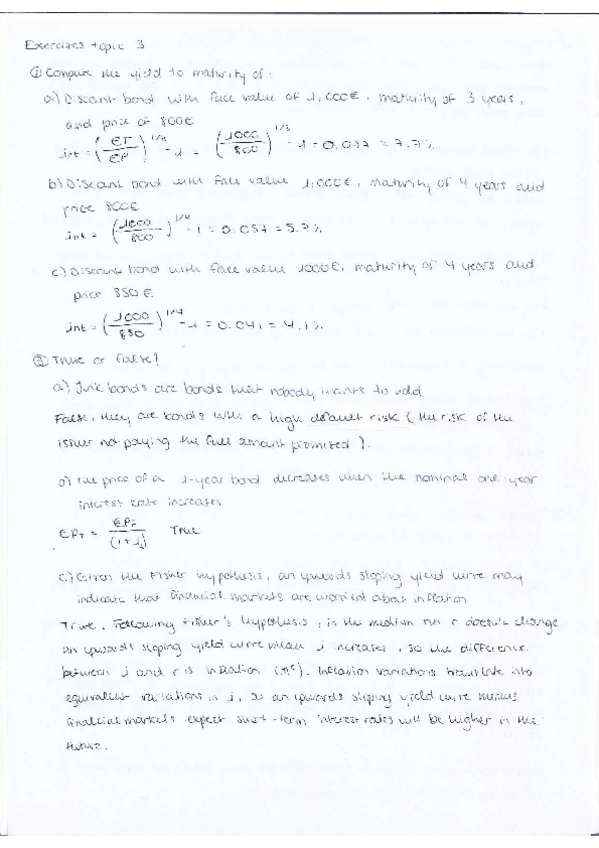 Exercises topic 3
① Compute the yield to maturity of:
a) Discount bond with face value of 1,000€, maturity of 3 years,
and price of 800€
int = (€T/€P)^1/n - 1 = (1000/800)^1/3 - 1 = 0.077 = 7.7%
b) Discount bond with face value 1.000€, maturity of 4 years and
price 800€
int = (1000/800)^1/4 - 1 = 0.057 = 5.7%
c) Discount bond with face value 1000€, maturity of 4 years and
price 850€
int = (1000/850)^1/4 - 1 = 0.041 = 4.1%
② True or false?
a) Junk bonds are bonds that nobody wants to hold
False, they are bonds with a high default risk (the risk of the
issuer not paying the full amount promised).
b) The price of a 1-year bond decreases when the nominal one year
interest rate increases
€PT = €PF/(1+i) True
c) Given the Fisher hypothesis, an upwards sloping yield curve may
indicate that financial markets are worried about inflation
True. Following Fisher's hypothesis, in the medium run r doesn't change
An upwards sloping yield curve mean i increases, so the difference
between i and r is inflation (πe). Inflation variations translate into
equivalent variations in i, so an upwards sloping yield curve means
financial markets expect short-term interest rates will be higher in the
future.